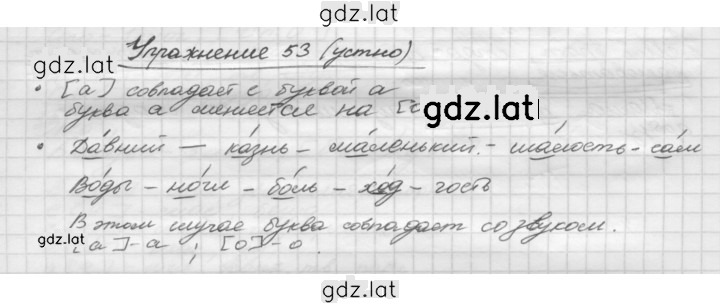 gdz.lat
Упражнение 53 (устно)
gdz.lat
• [а] совпадает с буквой а
буква а меняется на [
gdz.lat
• Да́вний – ка́знь – ма́ленький. – ша́лость – са́м
Во́ды – но́чи – бо́ль – хо́д – гость
В этом случае буква совпадает со звуком.
gdz.lat
[а] – а ; [о] – о.
gdz.lat